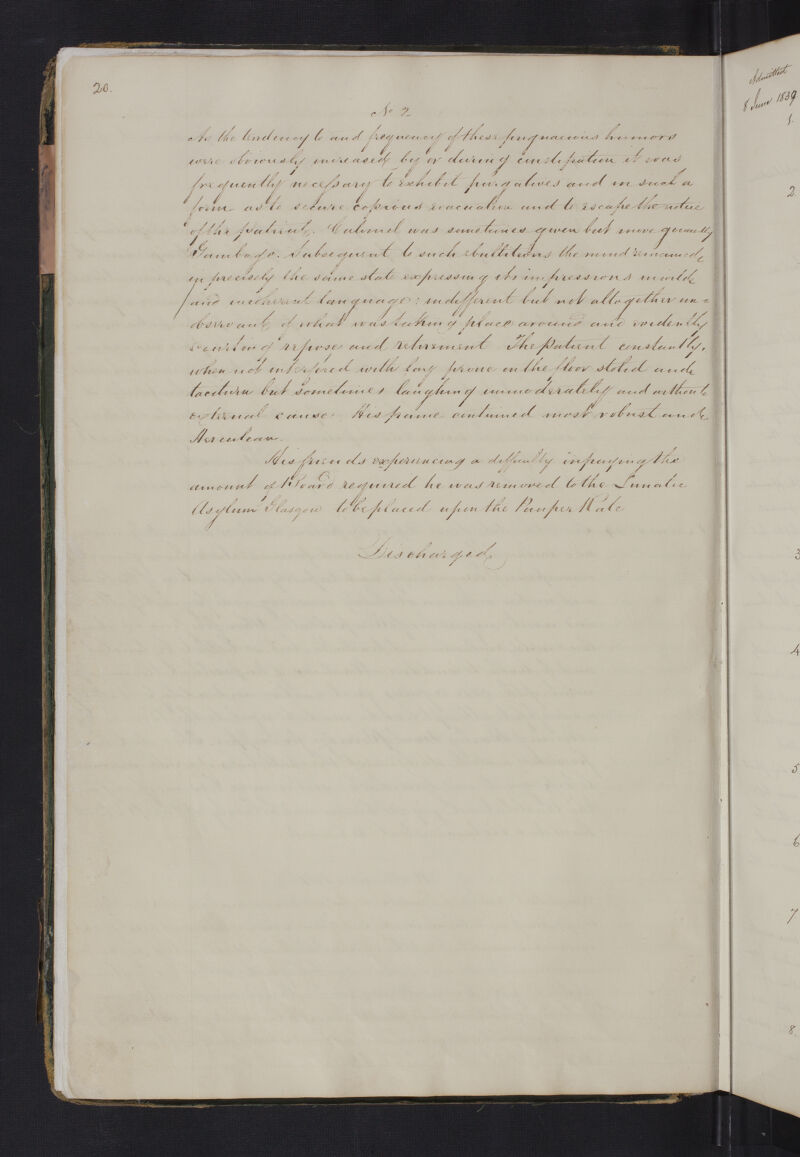 20.
No 2
As the tendency to and frequency of these pugnacious humors
were obviously increased by or during constipation it was
frequently necessary to exhibit purgatives and in such a
form as to secure copious evacuation and to escape the notice
of the patient. Calomel was sometimes given but more generally
Gamboge. Subsequent to such ebullitions the mind remained
in precisely the same state expressing its impressions in wild
and incoherent language: indifferent but not altogether un=
observant of what was taking place around and evidently
courting repose and retirement The patient constantly,
when not interfered with lay prone on the floor stolid and
taciturn but sometimes laughing immoderately and without
external cause. His frame continued most robust and
Herculean.
His friends experiencing a difficulty in paying the
amount of Board required he was removed to the Lunatic
Asylum Glasgow to be placed upon the Pauper Rate
Discharged
Admitted
8 June 1839
1.
2
3
4
5
6
7
8.